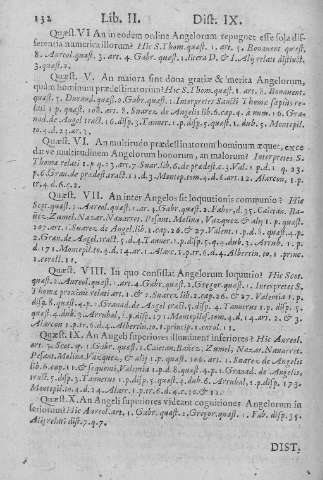 132 Lib. II. Dist. IX.
Quæst. VI An in eodem ordine Angelorum repugnet esse sola dif-
ferentia numerica illorum? Hic S. Thom. quæst. 1. art. 4. Bonauent quæst.
8. Aureol. quæst. 3. art. 4. Gabr. quæst. 1. litera D. & L. Alij relati distinct.
3. quæst. 2.
Quæst. V. An maiora sint dona gratiæ & merita Angelorum,
quàm hominum prædestinatorum? Hic S. Thom. quæst. 1. art. 8. Bonauent.
quæst. 7. Durand. quæst. 2. Gabr. quæst. 1. Interpretes Sancti Thomæ sæpius re-
lati 1 p. quæst. 108. art. 8. Suarez. de Angelis lib. 6. cap. 4. à num. 16. Gra-
nad. de Angel tract. 6. disp. 3. Tanner. 1. p. disp. 5. quæst. 1. dub. 5. Montepil.
to. 4. d. 23. ar. 2.
Quæst. VI. An multitudo prædestinatorum hominum æquet, exce-
dat ve multitudinem Angelorum bonorum, an malorum? Interpretes S.
Thomæ relati 1. p. q. 23. art. 7. Suar. lib. 6. de prædest. c. 3. Val. 1. p. d. 1. q. 23.
p. 6. Grau. de prædest. tract. 11. d. 3. Montep. tom. 4. d. 6. art. 12. Alarcon. 1. p.
tr. 4. d. 6. c. 2.
Quæst. VII. An inter Angelos sit loquutionis communio? Hic
Scot. quæst. 2. Aureol. quæst. 1. ar. 3. Gabr. quæst. 2. Fabr. d. 35. Caietan. Ba-
ñez. Zumel. Nazar. Nauarret. Pesant. Molina, Vazquez, & alij 1. p. quæst.
107. art. 1. Suarez de Angel. lib. 6. cap. 26. & 27. Valent. 1. p. d. 8. quæst. 4. p.
2. Gran. de Angel. tract. 5. d. 4. Tanner. 1. p. disp. 5. q. 4. dub. 3. Arrub. 1. p.
d. 171. Montepil. to. 4. d. 14. ar. 1. Alarcon. 1. p. tr. 6. d. 4. Albertin. to. 1. princ.
1. coroll. 11.
Quæst. VIII. In quo consistat Angelorum loquutio? Hic Scot.
quæst. 2. Aureol. quæst. 1. art. 4. Gabr. quæst. 2. Gregor. quæst. 1. Interpretes S.
Thomæ proximè relati art. 1. & 2. Suarez lib. 2. cap. 26. & 27. Valentia 1. p.
disp. 8. quæst. 4. p. 1. Granad. de Angel tract. 5. disp. 4. Tannerus 1. p. disp. 5.
quæst. 4. dub. 3. Arrubal, 1. p. disp. 171. Montepilos. tom. 4. d. 14. art. 2. & 3.
Alarcon 1. p. tr. 6. d. 4. Albertin. to. 1. princip. 1. corol. 11.
Quæst. IX. An Angeli superiores illuminent inferiores? Hic Aureol.
art. 2. Scot. q. 1. Gabr. quæst. 1. Caietan, Bañez, Zumel, Nazar, Nauarret.
Pesant. Molina, Vazquez, & alij 1. p. quæst. 106. art. 1. Suarez de Angelis
lib. 6. cap. 11. & sequenti, Valentia 1. p. d. 8. quæst. 4. p. 1. Granad. de Angelis,
tract. 5. disp. 3. Tannerus, 1. p. disp. 5. quæst. 4. dub. 6. Arrubal, 1. p. disp. 173.
Montepil. to. 4. d. 14. Alarc. 1. p. tr. 6. d. 4. c. 10. & 12.
Quæst. X. An Angeli superiores videant cogniciones Angelorum in
feriorum? Hic Aureol. art. 1. Gabr. quæst. 2. Gregor. quæst. 1. Fab. disp. 35.
Alij relati dist. 7. q. 7.
DIST: